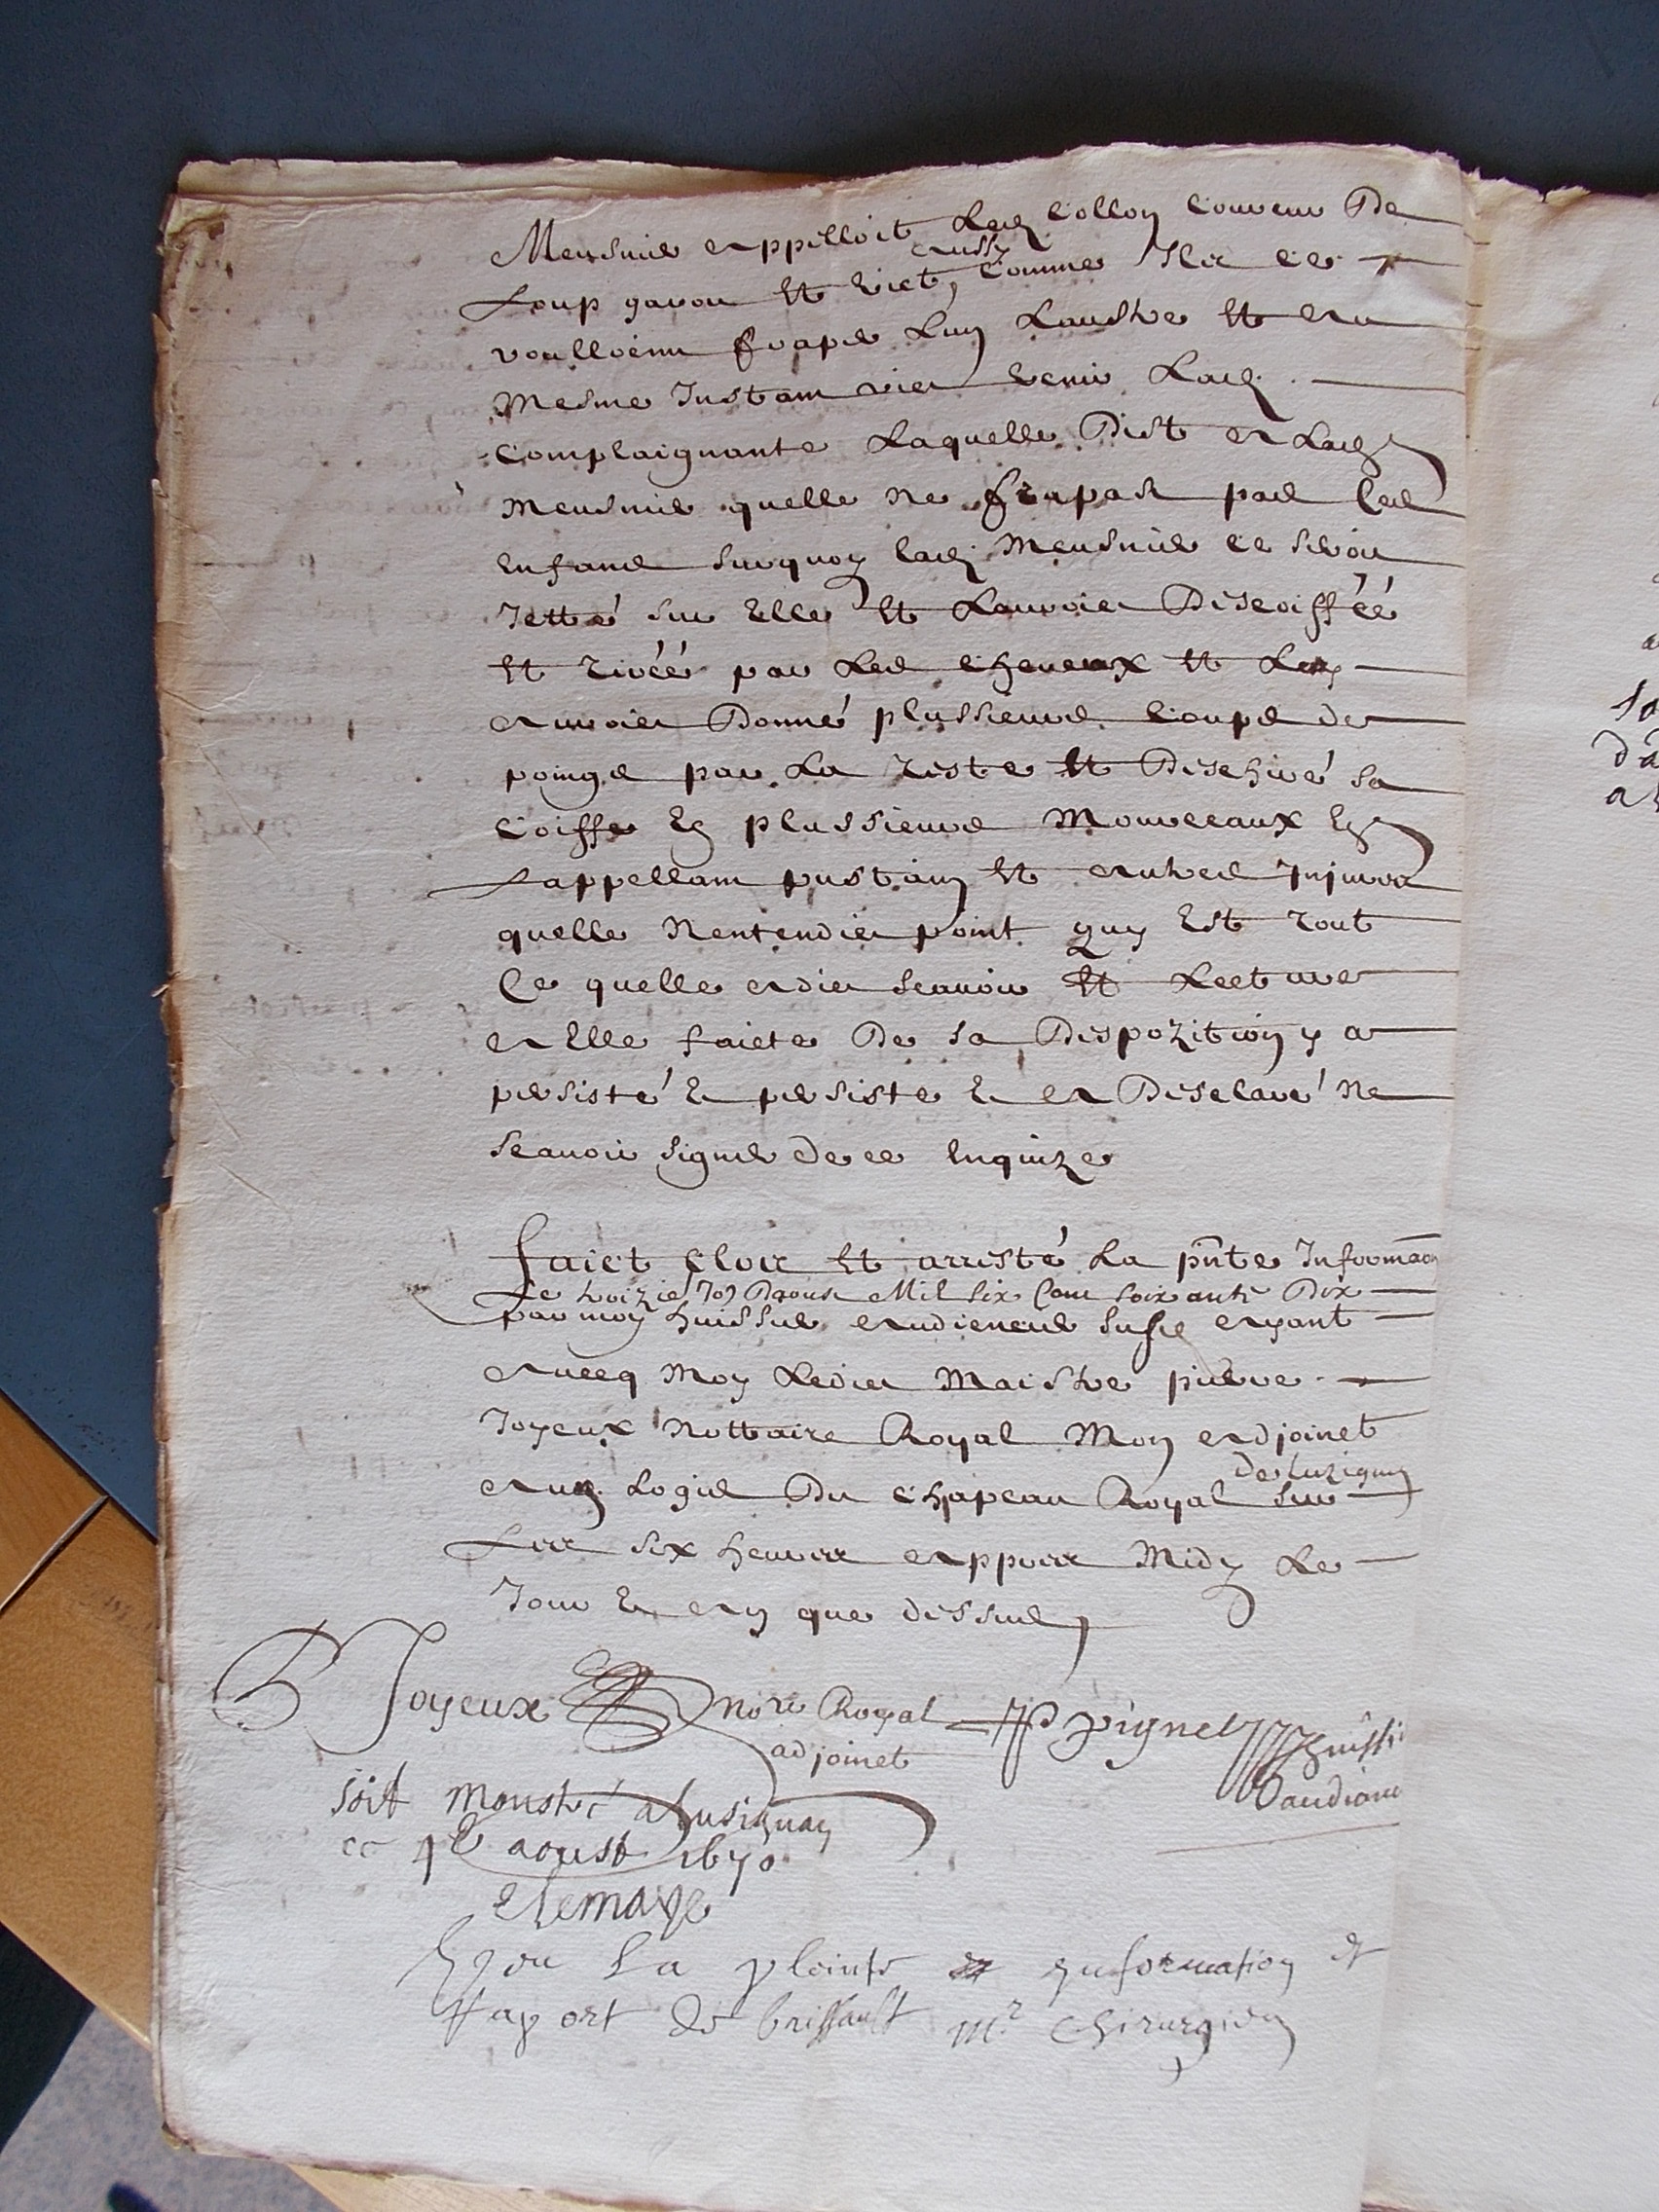 Meusnier appelloit lad. Collon coureur de
aussy
Loup garou et vict, comme Ilz ce
voulloient fraper Lun Laustre et au
mesme Instant vict venir Lad.
Complaignante Laquelle Dist a Lad.
Meusnier quelle ne frapast pas ses
enfans surquoy lad. Meusnier ce seroit
Jetté sur Elle et Lauroict Discoifféé
et tiréé par Les cheveux et Luy
auroict Donné plussieurs coups de
poings par La teste et Deschiré sa
coiffe En plussieurs Mourceaux En
Lappellant pustain et autres Injures
quelle Nentendict point quy Est tout
Ce quelle a dict scauoir et Lecture
a Elle faicte De sa Depozition y a
persisté et persiste et a Desclaré ne
scauoir signer de ce enquize
Faict clos et arresté La pnte Informaon
Le troizie Jor Daoust Mil six Cent soixante Dix
par moy huissier audiencier susd. ayant
auecq Moy Ledict Maistre pierre
Joyeux Nottaire Royal Mon adjoinct
de Luzignan
au Logis Du chapeau Royal sur
Les six heures appres Midy Le
Jour et an que dessus
P Joyeux nore Royal JP pignet huissier
adjoinct
Daudiance
soit monstré a Lusignan
ce 4e aoust 1670
Lemaye
Veu La plainte information et
raport de brissault mr chirurgien